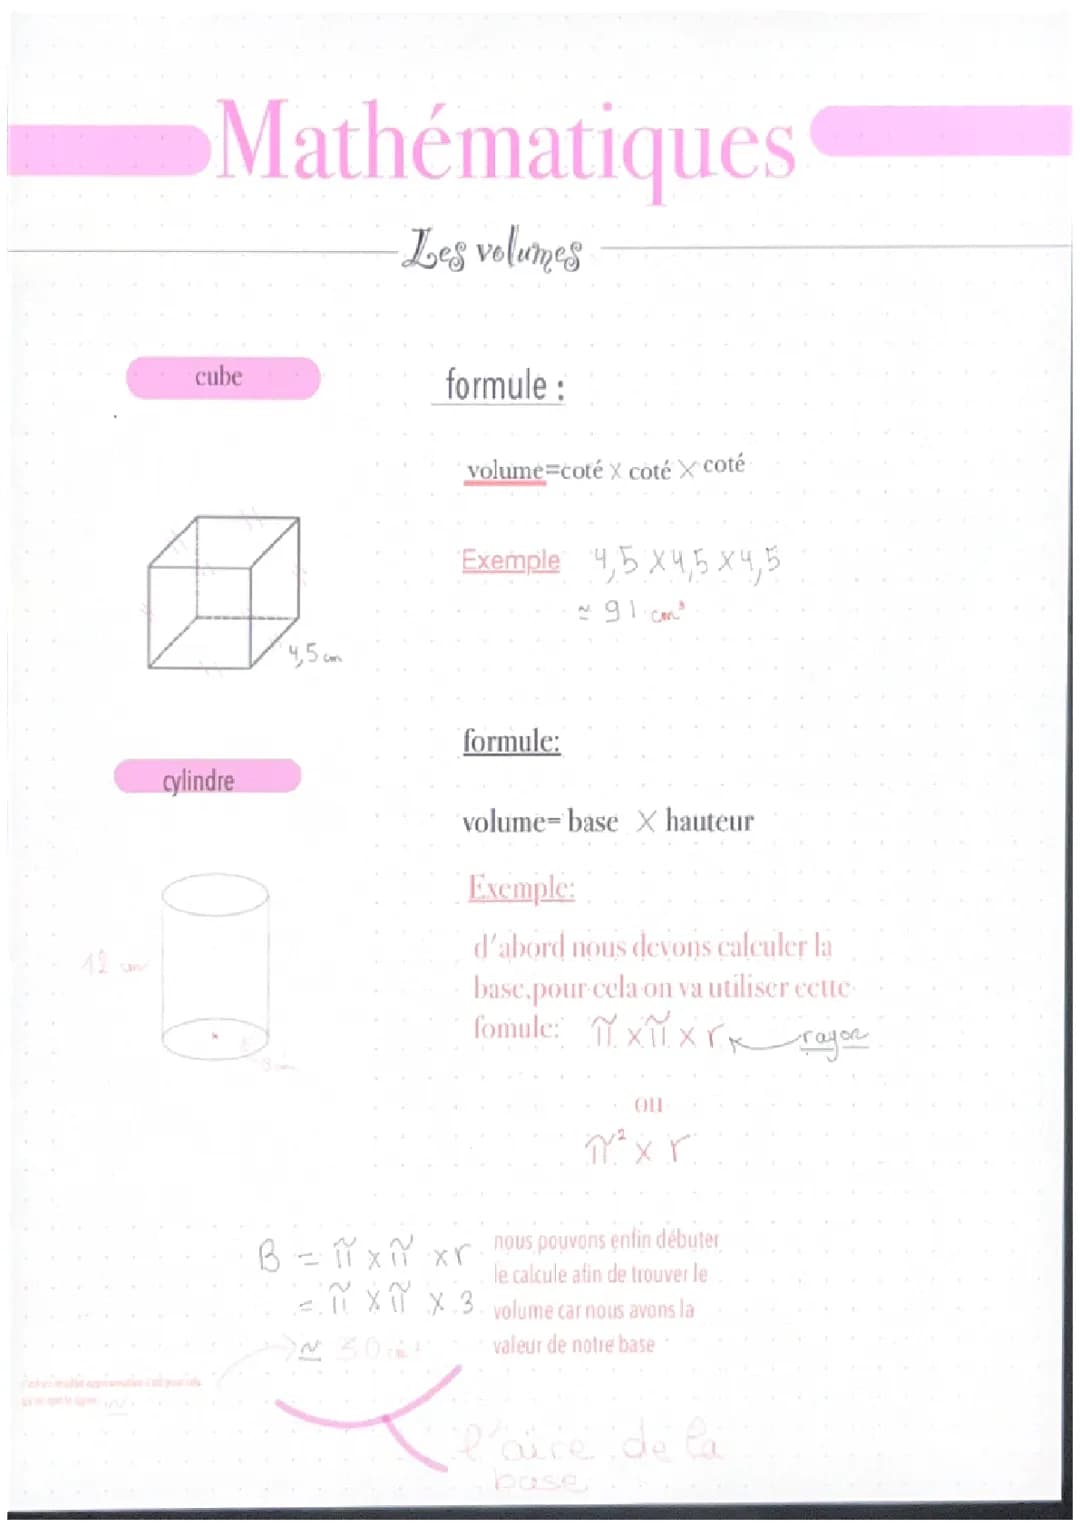 Mathématiques
Les volumes
cube
formule :
volume=coté X coté X coté
Exemple 4,5 X 4,5 X 4,5
≃ 91 cm³
4,5 cm
formule:
cylindre
volume= base X hauteur
Exemple:
d'abord nous devons calculer la
12 cm
base,pour cela on va utiliser cette
fomule: π x π x r rayon
3 cm
ou
π² x r
B = π x π x r
= π x π x 3
≃ 30
nous pouvons enfin débuter
le calcule afin de trouver le
volume car nous avons la
valeur de notre base
l'aire de la
base